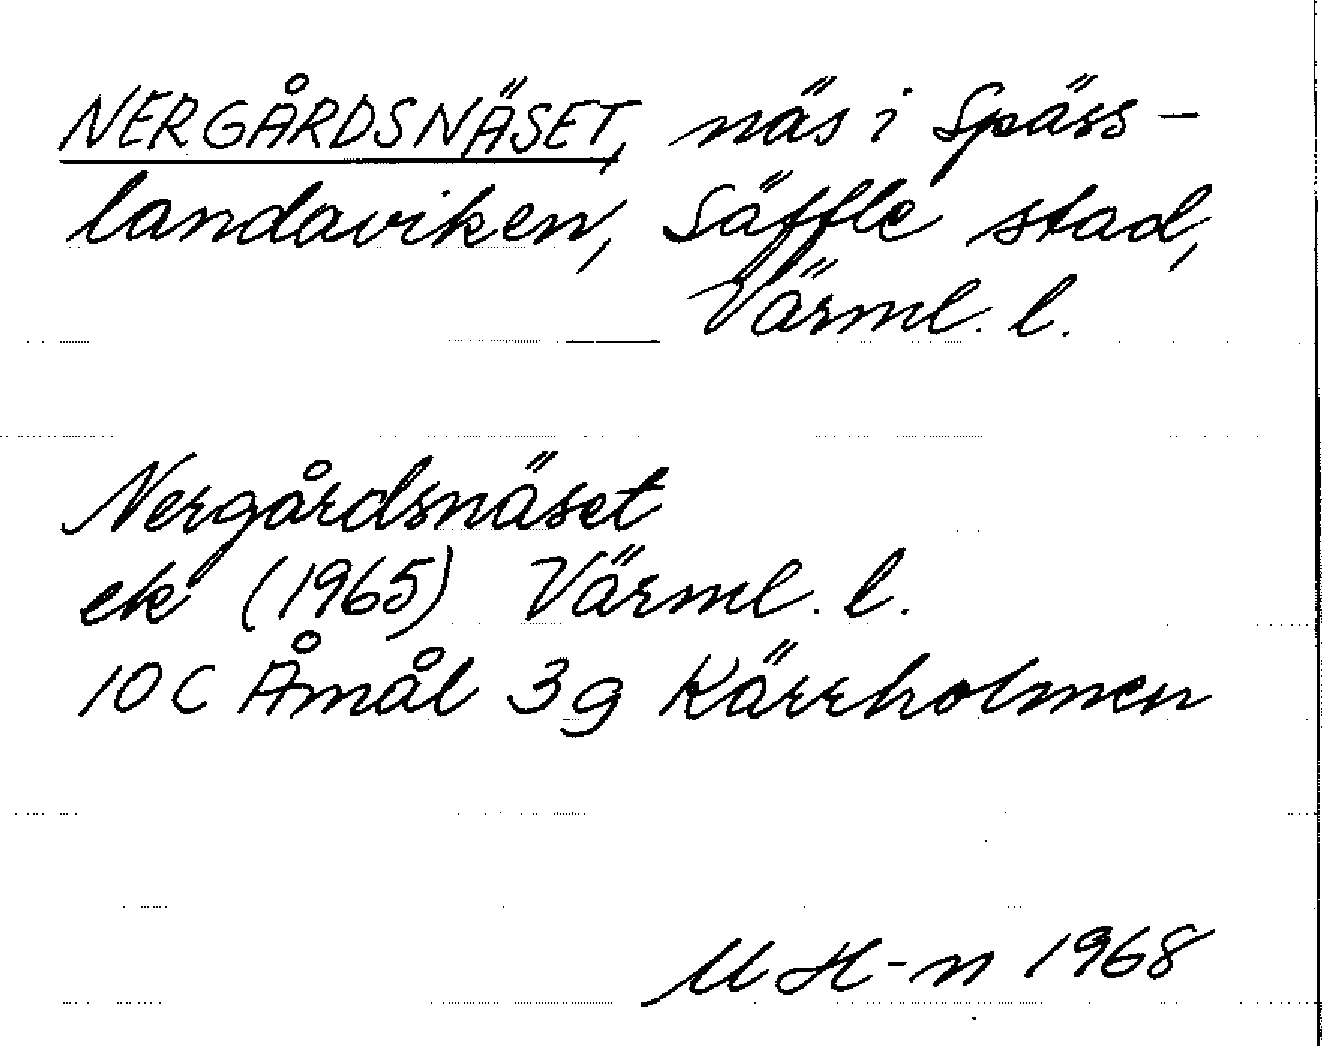 NERGÅRDSNÄSET, näs i Späss-
landaviken, Säffle stad,
Värml. l.
Nergårdsnäset
ek (1965) Värml. l.
10 C Åmål 3g Kärrholmen
M H-n 1968